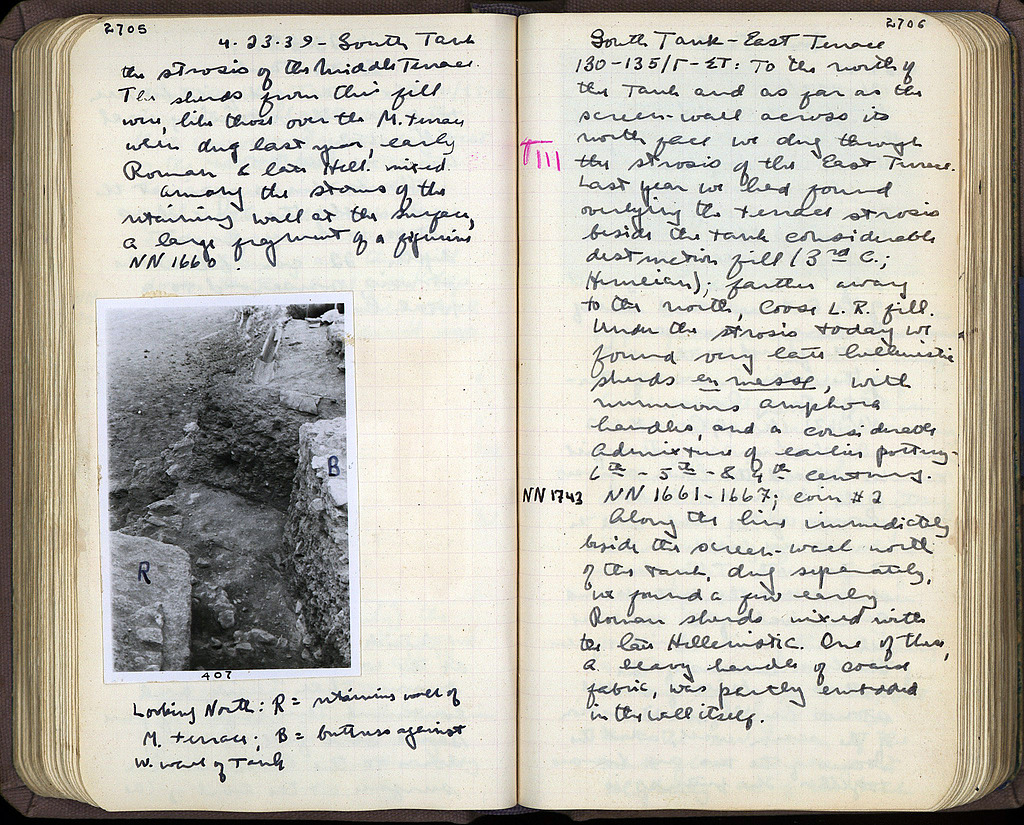 2705
4.23.39 - South Tank
the strosis of the Middle Terrace.
The sherds from this fill
were, like those over the M. terrace
when dug last year, early
Roman & late Hell. mixed.
Among the stones of the
retaining wall at the surface,
a large fragment of a figurine
NN 1660.
R
B
407
Looking North: R = retaining wall of
M. terrace; B = buttress against
W. wall of Tank
2706
South Tank - East Terrace
130-135/Γ-ΣΤ: To the north of
the Tank and as far as the
screen-wall across its
north face we dug through
TIII
the strosis of the East Terrace.
Last year we had found
overlying the terrace strosis
beside the tank considerable
destruction fill (3rd C.;
Herulian); farther away
to the north, loose L.R. fill.
Under the strosis today we
found very late hellenistic
sherds en masse, with
numerous amphora
handles, and a considerable
admixture of earlier pottery-
6th - 5th - & 4th century.
NN 1743 NN 1661-1667; coin #2
Along the line immediately
beside the screen-wall north
of the tank, dug separately,
we found a few early
Roman sherds mixed with
the late Hellenistic. One of these,
a heavy handle of coarse
fabric, was partly embedded
in the wall itself.